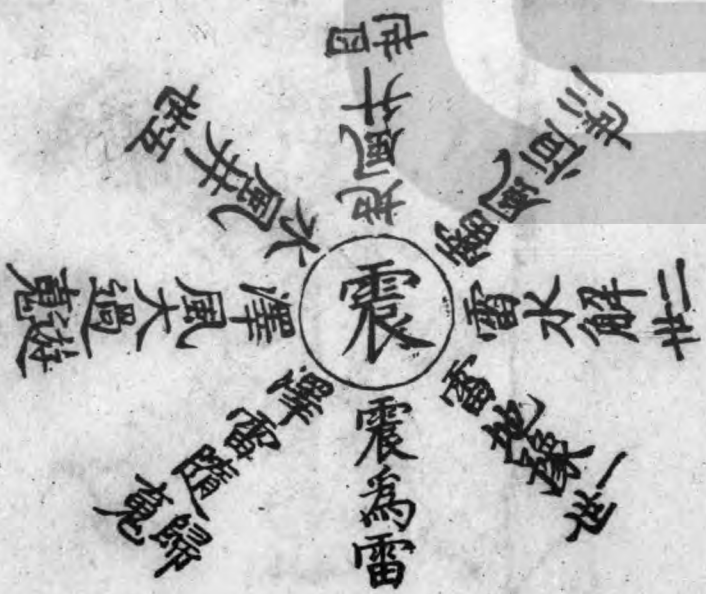 震
震為雷
雷地豫
一世
雷水解
二世
雷風恒
三世
地風升
四世
水風井
五世
澤風大過
遊魂
澤雷隨
歸魂